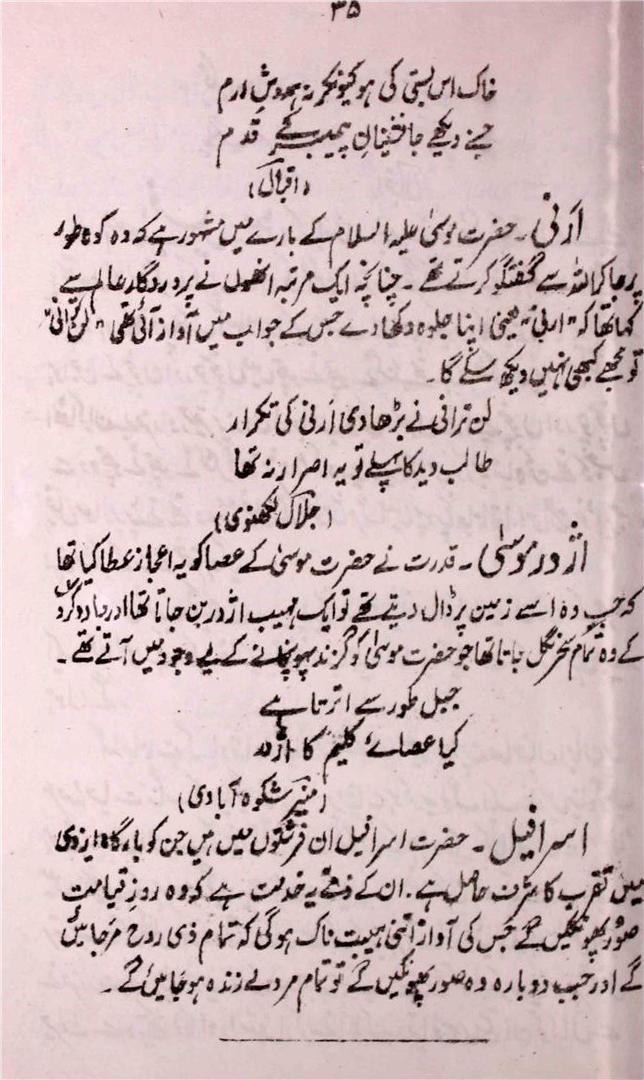 ۳۵
خاک اس بستی کی ہو کیونکر نہ ہمدوشِ ارم
جسنے دیکھے جانشینانِ پیمبر کے قدم
(اقبال)
اَرِنی۔ حضرت موسیٰ علیہ السلام کے بارے میں مشہور ہے کہ وہ کوہ طور
پر جا کر اللہ سے گفتگو کرتے تھے۔ چنانچہ ایک مرتبہ انھوں نے پروردگار عالم سے
کہا تھا کہ "اربی" یعنی اپنا جلوہ دکھا دے جس کے جواب میں آواز آئی تھی "لن ترانی"
تو مجھے کبھی نہیں دیکھ سکے گا۔
لن ترانی نے بڑھا دی اَرنی کی تکرار
طالب دید کا پہلے تو یہ اصرار نہ تھا
(جلال لکھنوی)
اژدر موسیٰ۔ قدرت نے حضرت موسیٰ کے عصا کو یہ اعجاز عطا کیا تھا
کہ جب وہ اسے زمین پر ڈال دیتے تھے تو ایک مہیب اژدر بن جاتا تھا اور جادوگروں
کے وہ تمام سحر نگل جاتا تھا جو حضرت موسیٰ کو گزند پہونچانے کے لیے وجود میں آتے تھے۔
جبل طور سے اترتا ہے
کیا عصائے کلیم کا اژدر
(منیر شکوہ آبادی)
اسرافیل۔ حضرت اسرافیل ان فرشتوں میں ہیں جن کو بارگاہ ایزدی
میں تقرب کا شرف حاصل ہے۔ ان کے ذمے یہ خدمت ہے کہ وہ روزِ قیامت
صور پھونکیں گے جس کی آواز اتنی ہیبت ناک ہوگی کہ تمام ذی روح مر جائیں
گے اور جب دوبارہ وہ صور پھونکیں گے تو تمام مردے زندہ ہو جائیں گے۔